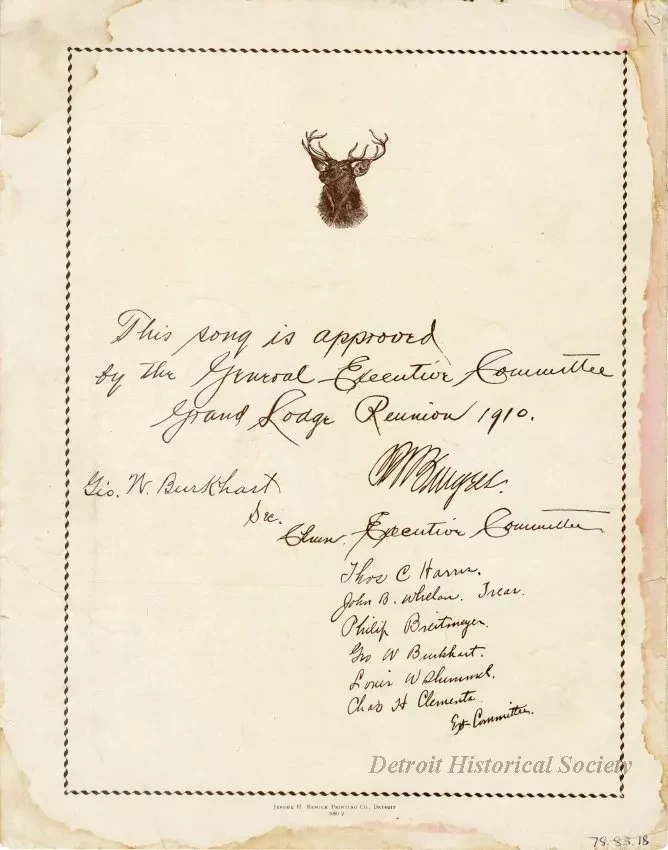 15
This song is approved
by the General Executive Committee
Grand Lodge Reunion 1910.
Geo. W. Burkhart
Sec.
Chmn. Executive Committee
Thos C Harris.
John B. Whelan. Treas.
Philip Breitmeyer.
Geo W Burkhart.
Louis W Schimmel.
Chas H Clements.
Ex-Committee.
Detroit Historical Society
Jerome H. Remick Printing Co., Detroit
78.83.18